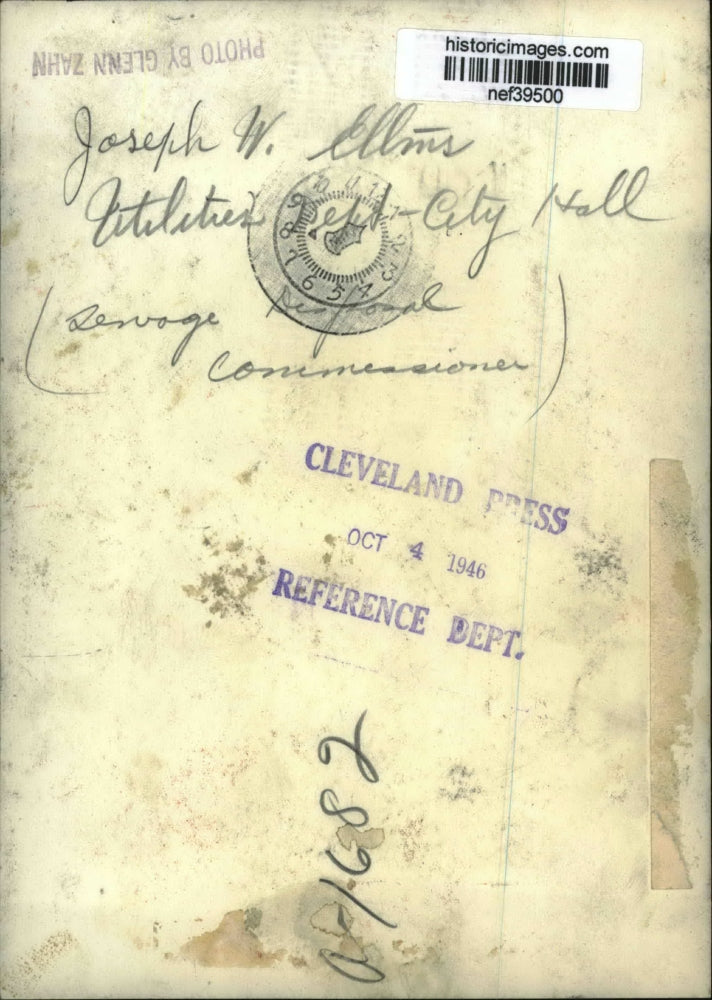 PHOTO BY GLENN ZAHN
historicimages.com
nef39500
Joseph W. Ellms
Utilities Dept-City Hall
9 10 11 12 1 2 3 4 5 6 7 8
(Sewage Disposal
Commissioner)
CLEVELAND PRESS
OCT 4 1946
REFERENCE DEPT.
a-1682